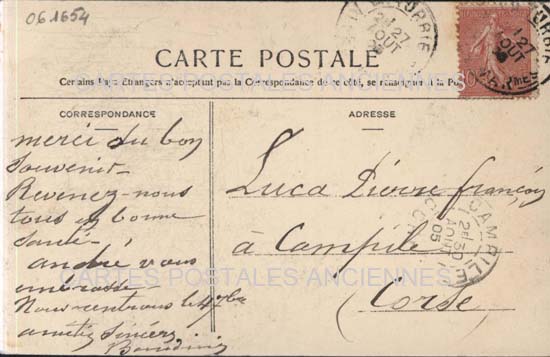 06.1654
CARTE POSTALE
Certains Pays Etrangers n'acceptent pas la Correspondance de ce côté, se renseigner à la Pos
CORRESPONDANCE
ADRESSE
merci du bon
souvenir
Revenez-nous
tous en bonne
santé
andré vous
embrasse
Nous rentrons le
amitiés sincères
Luca Pierre françois
à Campile
(Corse)
CAMPILE
30
AOUT
05
27
AOUT
10
CARTES POSTALES ANCIENNES